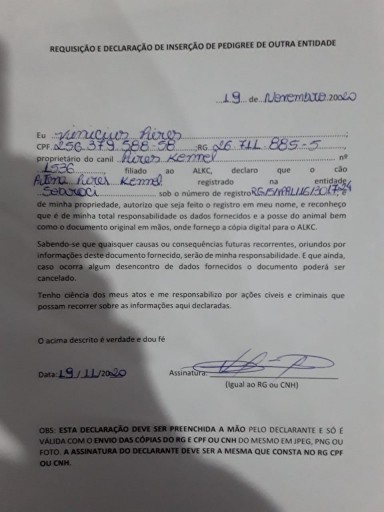 REQUISIÇÃO E DECLARAÇÃO DE INSERÇÃO DE PEDIGREE DE OUTRA ENTIDADE
19 de Novembro 20020
Eu Vinicius Aires
CPF. 256.379.588-58 ;RG. 26.711.885-5
proprietário do canil Aires Kennel nº
1536 filiado ao ALKC, declaro que o cão
Aires Kennel registrado na entidade
Sobraci sob o número de registro
de minha propriedade, autorizo que seja feito o registro em meu nome, e reconheço
que é de minha total responsabilidade os dados fornecidos e a posse do animal bem
como o documento original em mãos, onde forneço a cópia digital para o ALKC.
Sabendo-se que quaisquer causas ou consequências futuras recorrentes, oriundos por
informações deste documento fornecido, serão de minha responsabilidade. E que ainda,
caso ocorra algum desencontro de dados fornecidos o documento poderá ser
cancelado.
Tenho ciência dos meus atos e me responsabilizo por ações cíveis e criminais que
possam recorrer sobre as informações aqui declaradas.
O acima descrito é verdade e dou fé
Data: 19/11/2020 Assinatura:
(Igual ao RG ou CNH)
OBS: ESTA DECLARAÇÃO DEVE SER PREENCHIDA A MÃO PELO DECLARANTE E SÓ É
VÁLIDA COM O ENVIO DAS CÓPIAS DO RG E CPF OU CNH DO MESMO EM JPEG, PNG OU
FOTO. A ASSINATURA DO DECLARANTE DEVE SER A MESMA QUE CONSTA NO RG CPF
OU CNH.